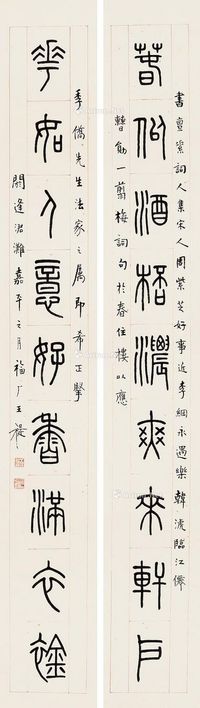 書亶詞人集宋人周紫芝好事近李綱永遇樂韓淲臨江僊
春似酒桮濃爽來軒戶
曹勛一翦梅詞句於春住樓以應
季僑先生法家之屬即希正擥
花如人意好香滿衣䘳
閼逢涒灘嘉平之月福厂王禔